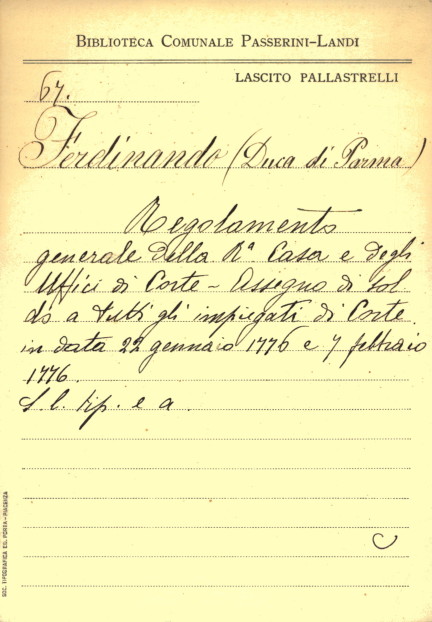 BIBLIOTECA COMUNALE PASSERINI-LANDI
LASCITO PALLASTRELLI
67.
Ferdinando (Duca di Parma)
Regolamento
generale della Rª Casa e degli
Uffici di Corte - Assegno di sol
do a tutti gli impiegati di Corte
in data 22 gennaio 1776 e 7 febbraio
1776.
S. l. tip. e a.
SOC. TIPOGRAFICA ED. PORTA-PIACENZA